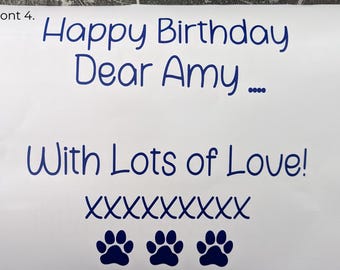 ont 4.
Happy Birthday
Dear Amy ....
With Lots of Love!
XXXXXXXXX